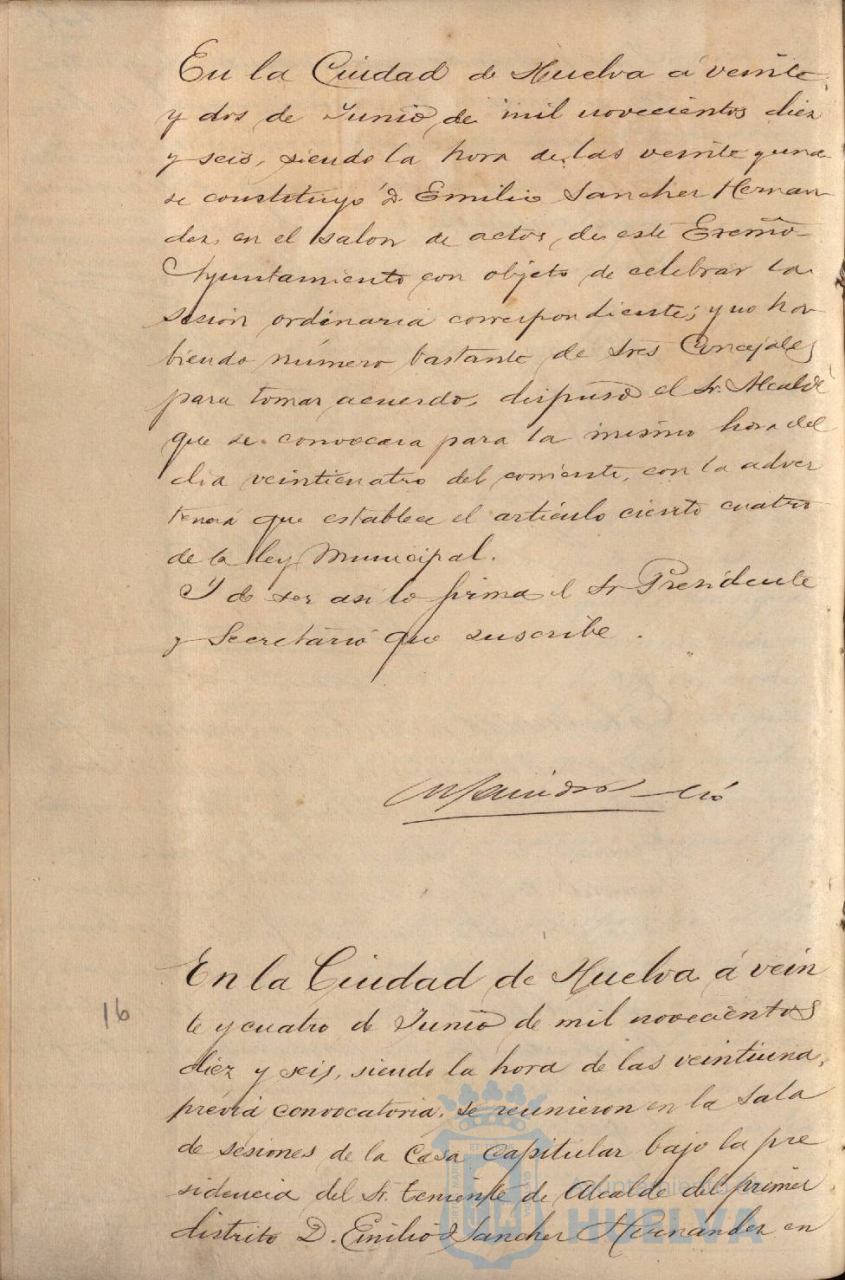 En la Ciudad de Huelva á veinte
y dos de Junio de mil novecientos diez
y seis, siendo la hora de las veinte y una
se constituyó D. Emilio Sanchez Hernan-
dez en el salon de actos de este Excmo
Ayuntamiento con objeto de celebrar la
sesion ordinaria correspondiente; y no ha-
biendo número bastante de Sres Concejales
para tomar acuerdo, dispuso el Sr. Alcalde
que se convocara para la misma hora del
dia veinticuatro del corriente, con la adver
tencia que establece el artículo ciento cuatro
de la ley Municipal.
Y de ser asi lo firma el Sr Presidente
y Secretario que suscribe.
En la Ciudad de Huelva á vein
16
te y cuatro de Junio de mil novecientos
diez y seis, siendo la hora de las veintiuna,
prévia convocatoria, se reunieron en la Sala
de sesiones de la Casa Capitular bajo la pre
sidencia del Sr. teniente de Alcalde del primer
distrito D. Emilio Sanchez Hernandez en
Ayuntamiento de
HUELVA